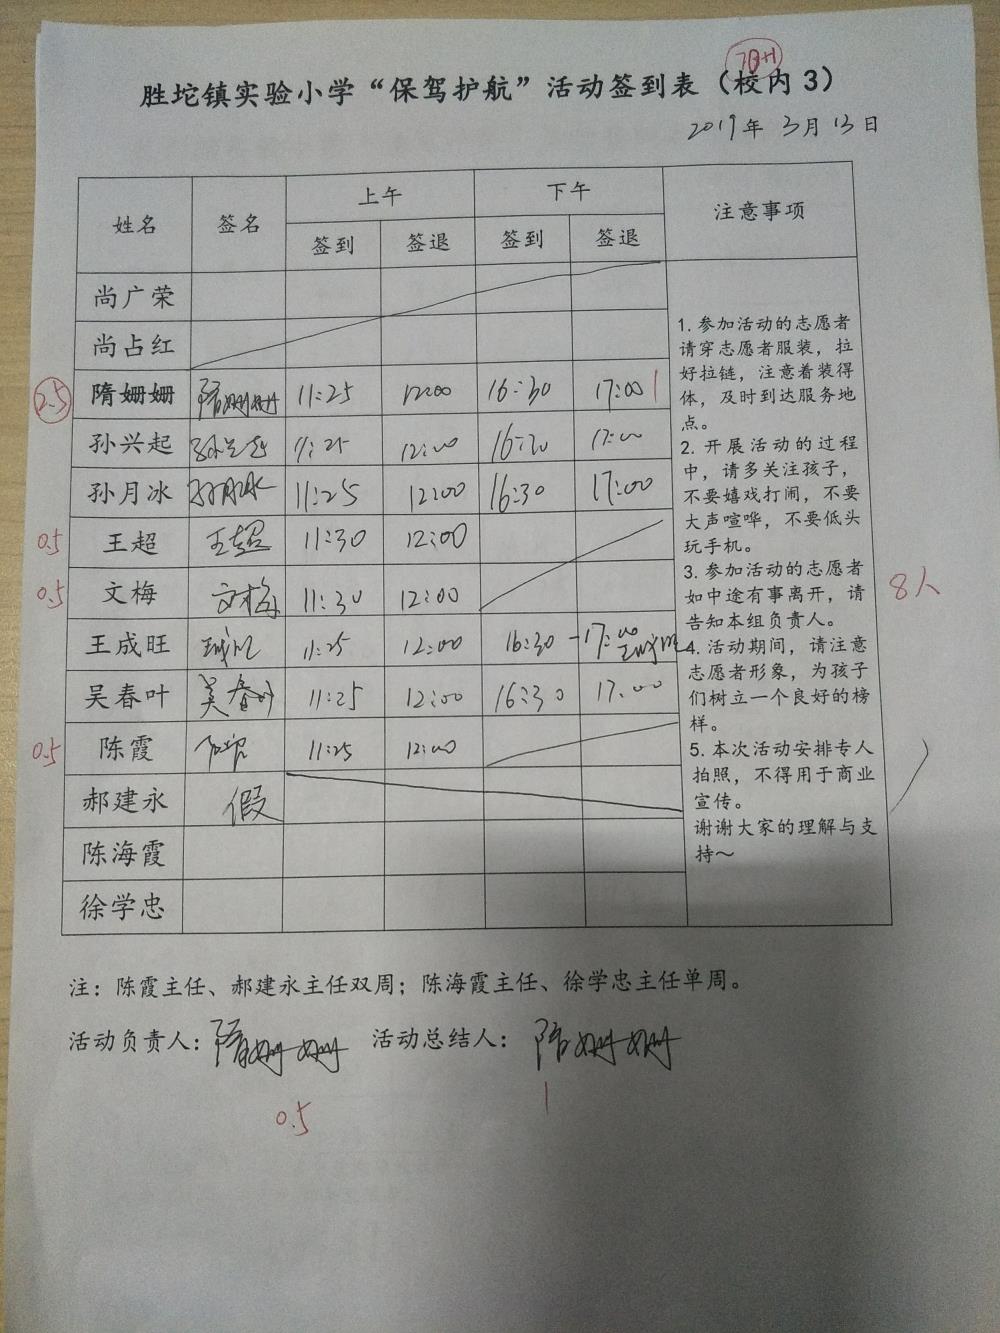 胜坨镇实验小学“保驾护航”活动签到表（校内3）
2019年 3月 13日
姓名 签名 上午 下午 注意事项
签到 签退 签到 签退
尚广荣
尚占红
2.5 隋姗姗 隋姗姗 11:25 12:00 16:30 17:00 1
孙兴起 孙兴起 11:25 12:00 16:30 17:00
孙月冰 孙月冰 11:25 12:00 16:30 17:00
0.5 王超 王超 11:30 12:00
0.5 文梅 文梅 11:30 12:00
王成旺 王成旺 11:25 12:00 16:30 17:00 王成旺
吴春叶 吴春叶 11:25 12:00 16:30 17:00
0.5 陈霞 陈霞 11:25 12:00
郝建永 假
陈海霞
徐学忠
1. 参加活动的志愿者
请穿志愿者服装，拉
好拉链，注意着装得
体，及时到达服务地
点。
2. 开展活动的过程
中，请多关注孩子，
不要嬉戏打闹，不要
大声喧哗，不要低头
玩手机。
3. 参加活动的志愿者
如中途有事离开，请
告知本组负责人。
4. 活动期间，请注意
志愿者形象，为孩子
们树立一个良好的榜
样。
5. 本次活动安排专人
拍照，不得用于商业
宣传。
谢谢大家的理解与支
持～
8人
注：陈霞主任、郝建永主任双周；陈海霞主任、徐学忠主任单周。
活动负责人：隋姗姗 活动总结人：隋姗姗
0.5 1